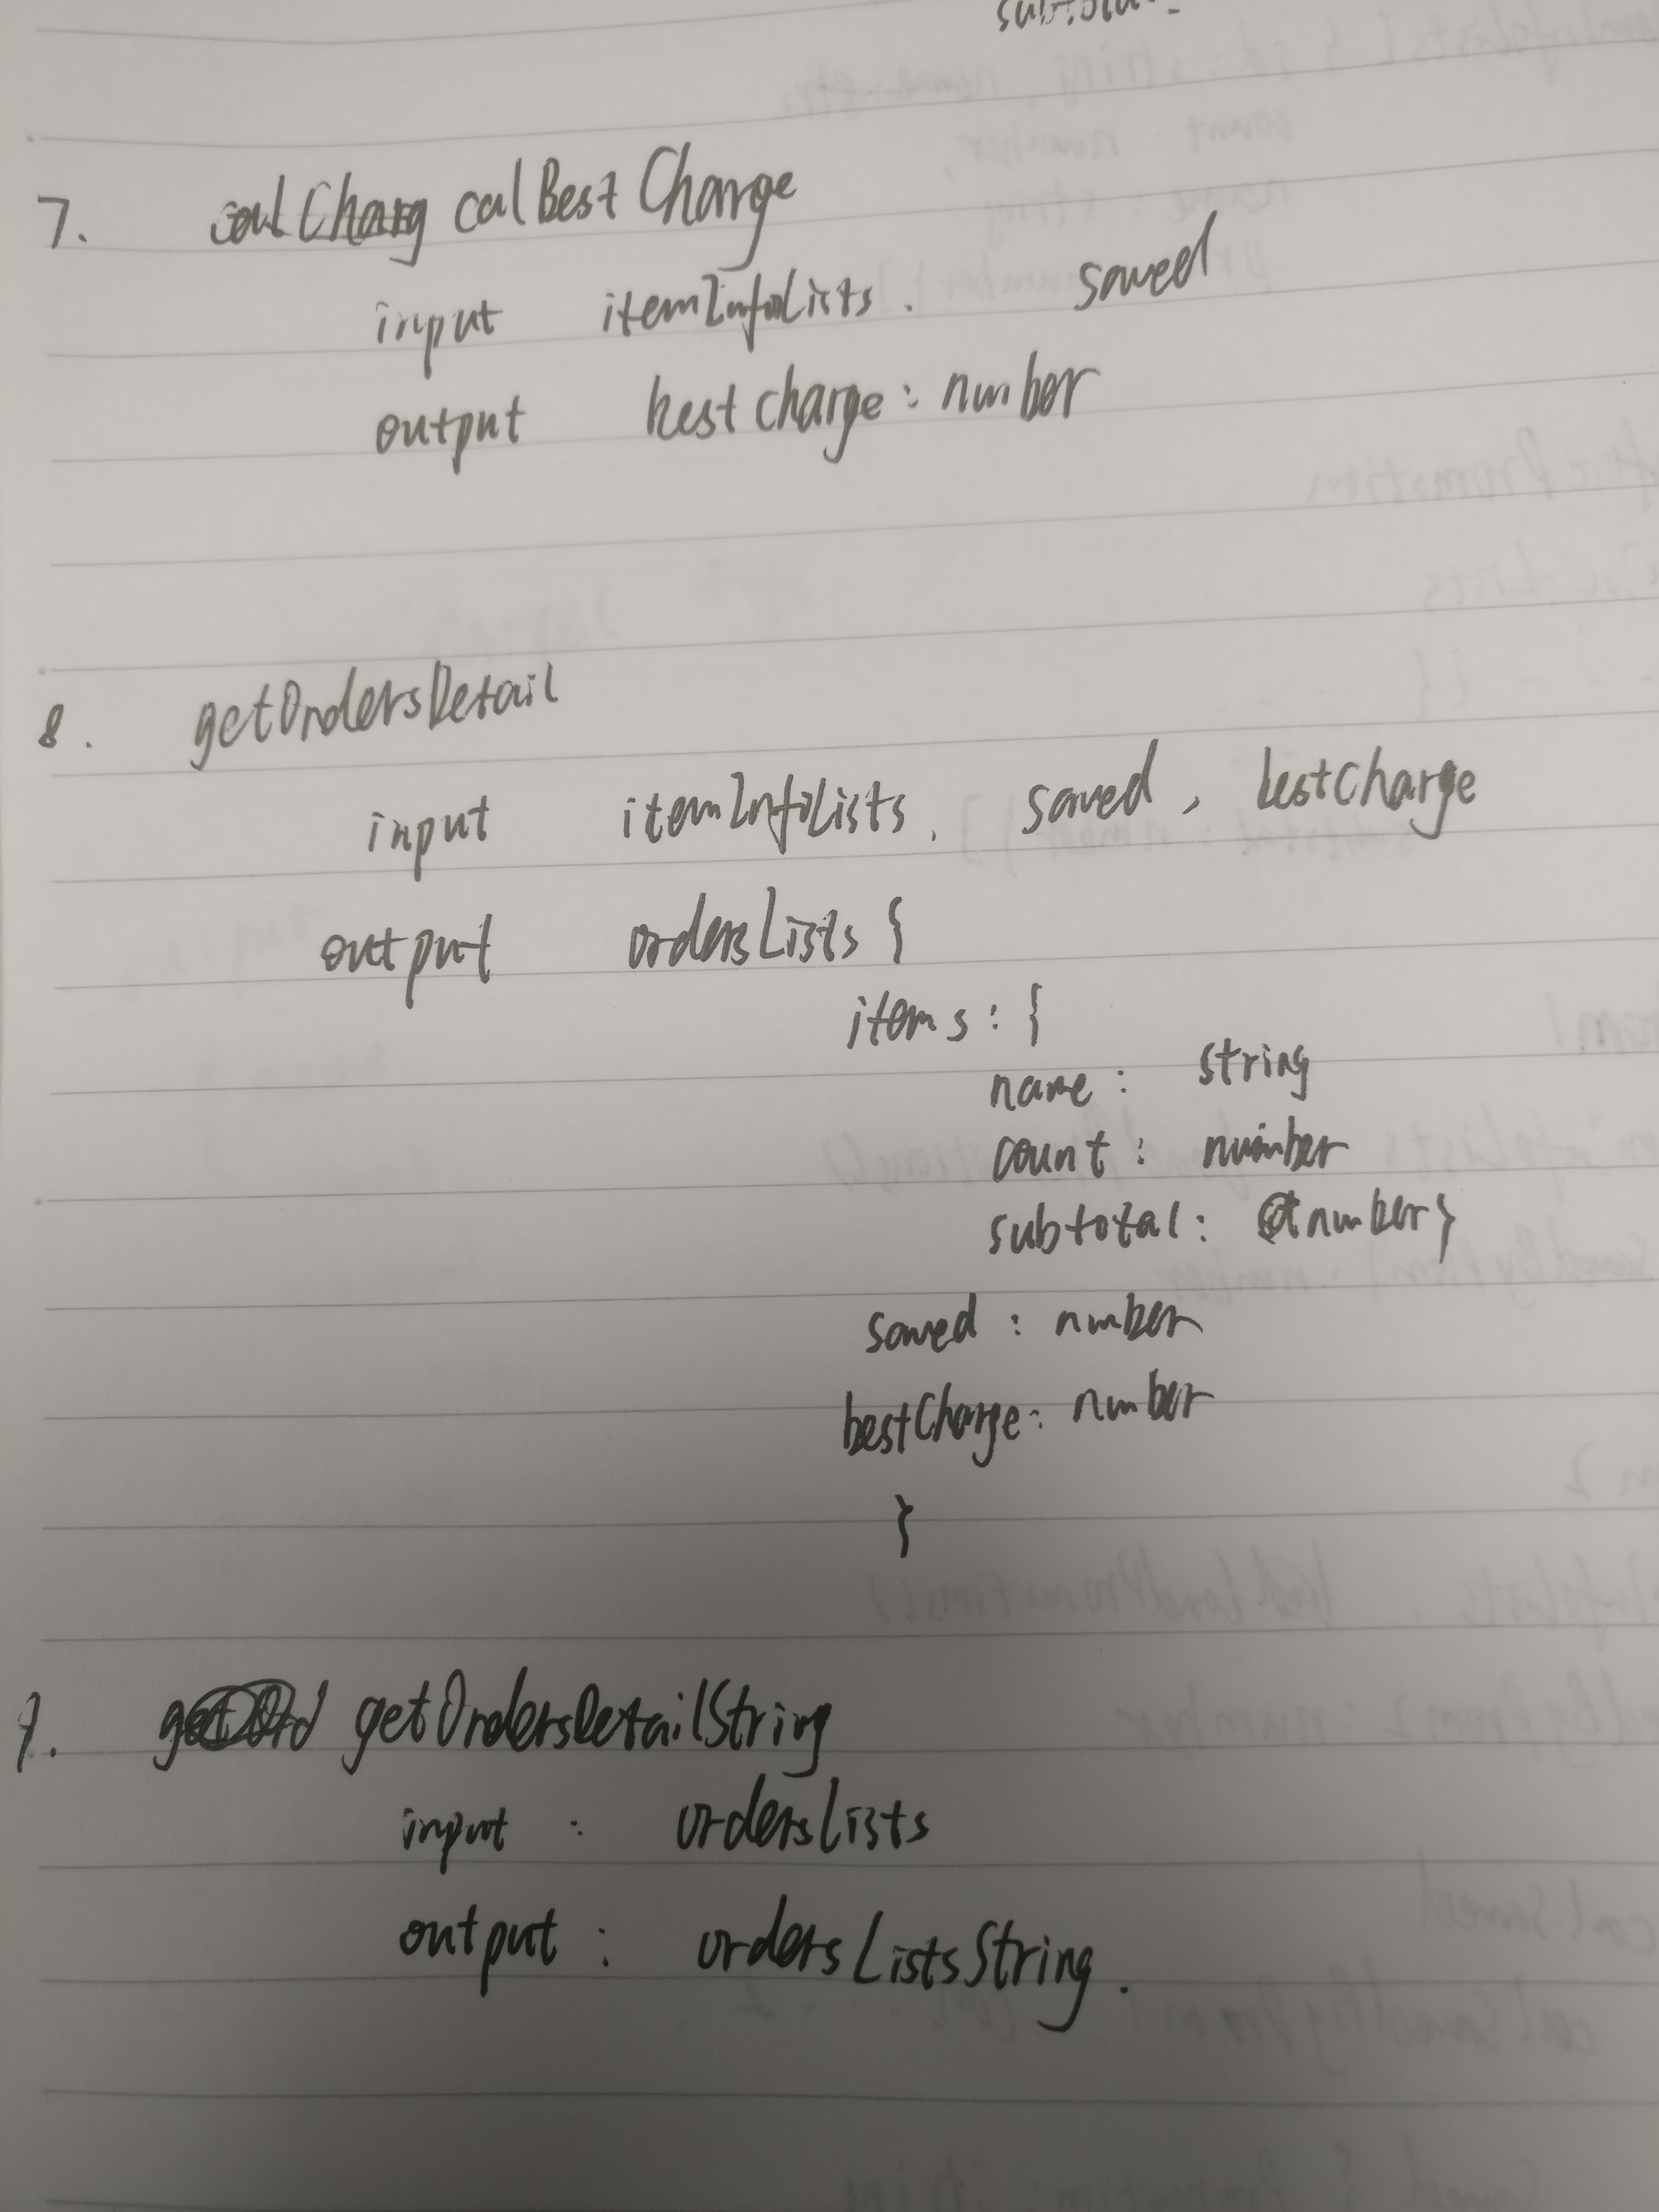 7. calBestCharge
input itemInfoLists. saved
output bestcharge: number
8. getOrdersDetail
input itemInfoLists, saved, bestcharge
output ordersLists {
items: {
name: string
count: number
subtotal: number}
saved: number
bestCharge: number
}
9. getOrdersDetailString
input: ordersLists
output: ordersListsString.